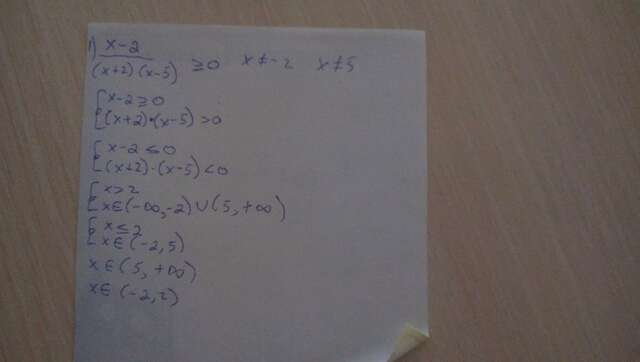 1) x-2
(x+2)(x-5) ≥0 x≠-2 x≠5
{ x-2≥0
(x+2)·(x-5)>0
{ x-2≤0
(x+2)·(x-5)<0
{ x≥2
x∈(-∞,-2)∪(5,+∞)
{ x≤2
x∈(-2,5)
x∈(5,+∞)
x∈(-2,2)